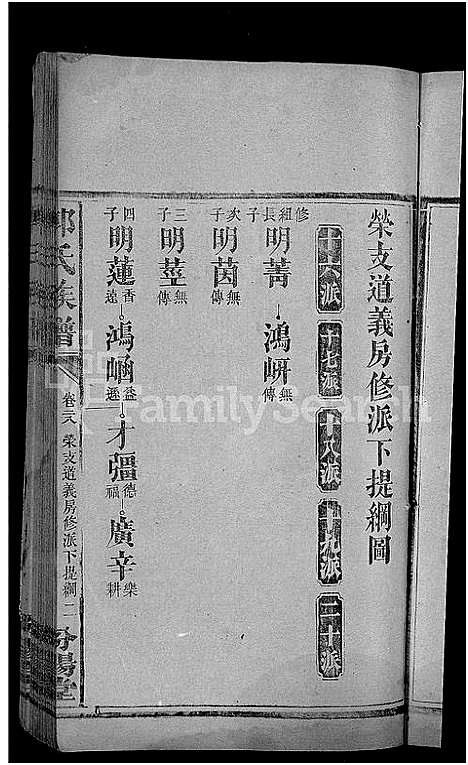 榮支道義房修派下提綱圖
十六派 十七派 十八派 十九派 二十派
修組長子 明菁 鴻岍 無傳
次子 明茵 無傳
三子 明莖 無傳
四子 明蓮 香遠 鴻崡 益遜 才彊 德福 廣辛 樂耕
氏族譜
卷二八 榮支道義房修派下提綱 二
汾陽堂
FamilySearch